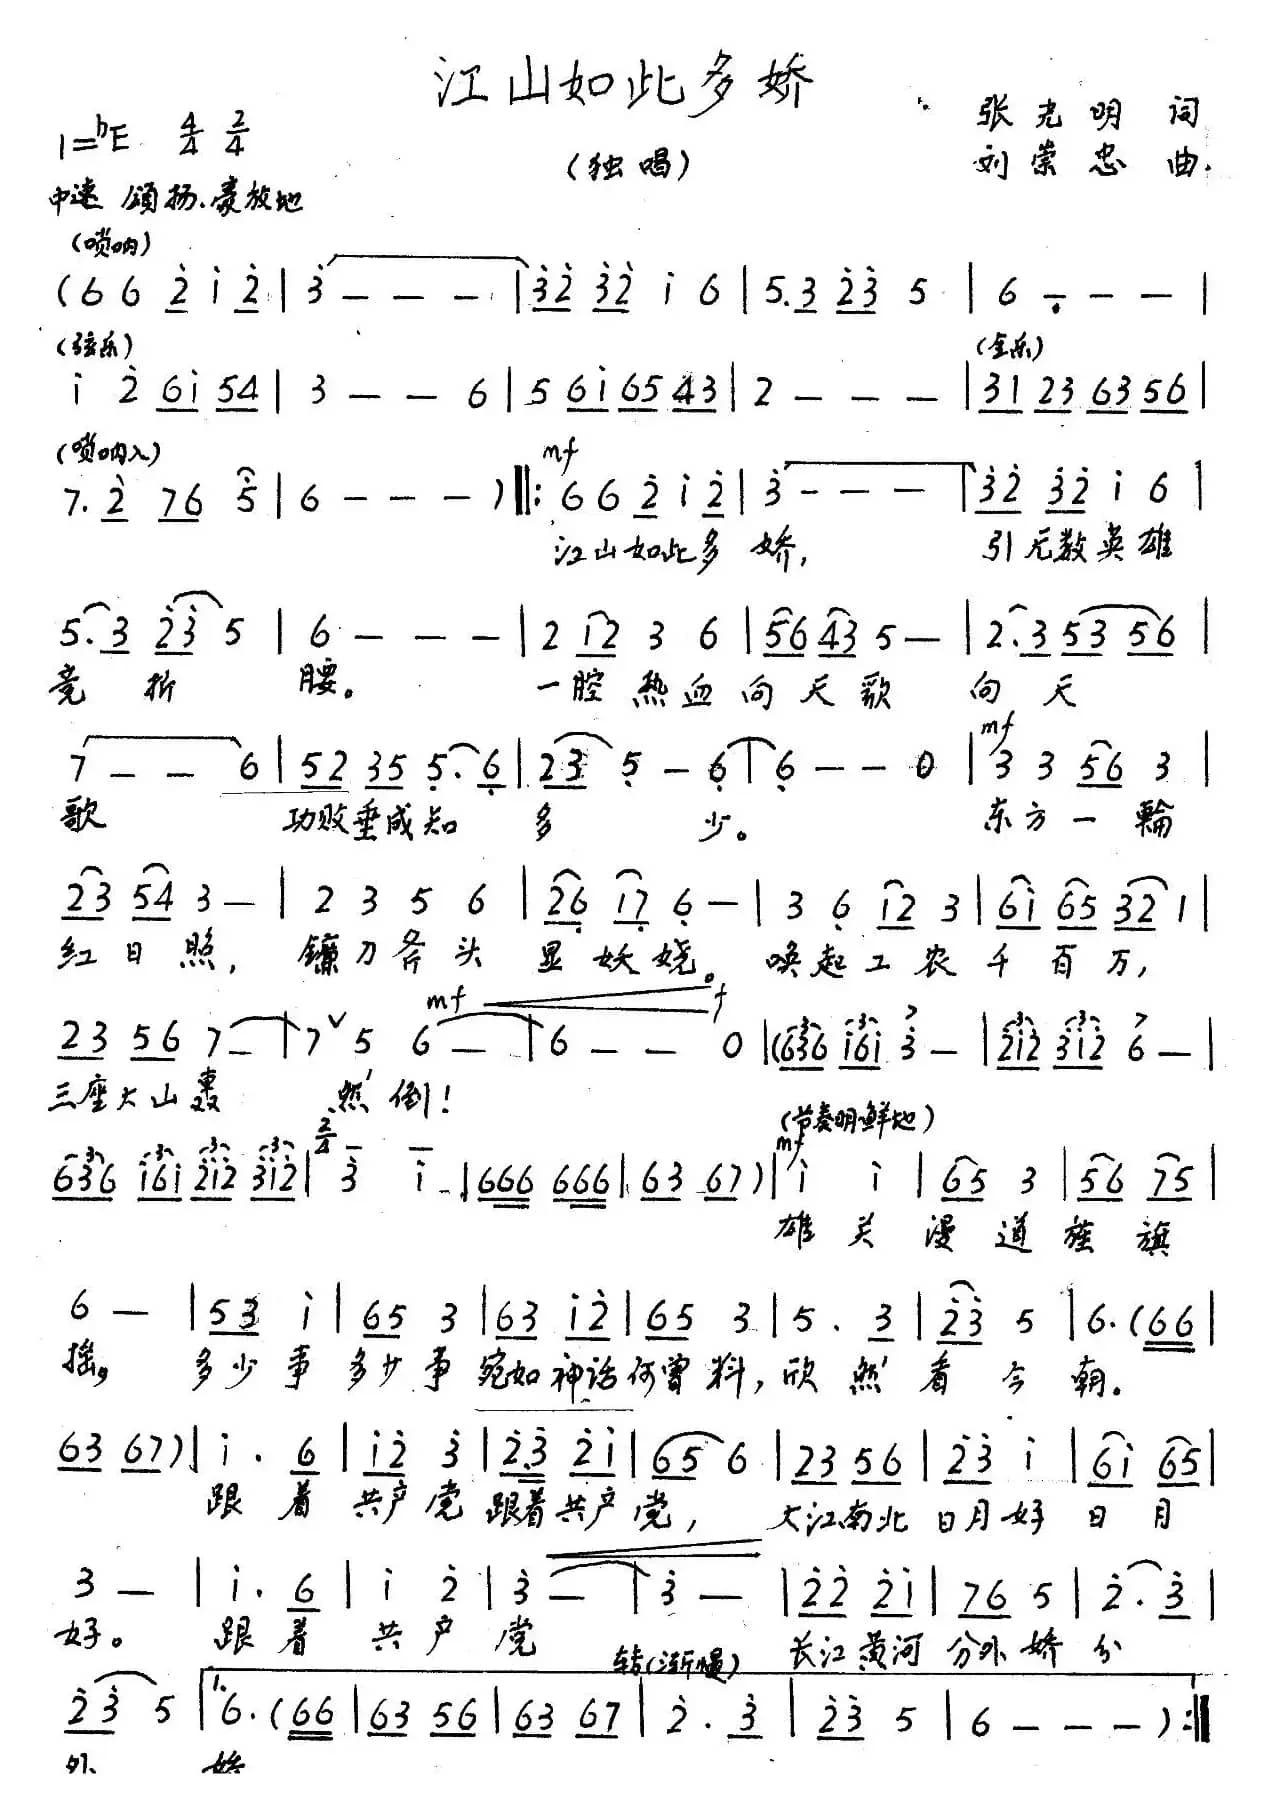 江山如此多娇
1=♭E 4/4 2/4
(独唱)
张光明 词
刘崇忠 曲.
中速 颂扬、豪放地
(唢呐)
(6 6 2̇ i 2̇ | 3̇ — — — | 3̇2̇ 3̇2̇ i 6 | 5.3 2̇3̇ 5 | 6 — — — |
(弦乐) (全乐)
i 2̇ 6i 54 | 3 — — 6 | 5 6i 65 43 | 2 — — — | 31 23 63 56 |
(唢呐入) mf
7. 2̇ 76 5̇ | 6 — — — ) ‖: 6 6 2̇ i 2̇ | 3̇ — — — | 3̇2̇ 3̇2̇ i 6 |
江山如此多 娇, 引无数英雄
5.3 2̇3̇ 5 | 6 — — — | 2 12 3 6 | 56 43 5 — | 2.3 53 56 |
竞 折 腰。 一腔热血向天歌 向天
mf
7 — — 6 | 52 35 5̣.6̣ | 23 5̣ — 6̣ | 6̣ — — 0 | 3 3 56 3 |
歌 功败垂成知 多 少。 东方一輪
23 54 3 — | 2 3 5 6 | 26̣ 17̣ 6̣ — | 3 6̣ 12 3 | 6i 65 32 1 |
红日照, 镰刀斧头 显妖娆。 唤起工农千百万,
mf f
23 56 7 — | 7 ∨ 5 6 — | 6 — — 0 | (636 i6i 3̇ — | 2̇i2̇ 3̇i2̇ 6 — |
三座大山轰 然倒!
(节奏明鲜地)
mf
636 i6i 2̇i2̇ 3̇i2̇ | 2/4 3̇ i | 666 666 | 63 67) | i i | 65 3 | 56 75 |
雄关漫道旌旗
6 — | 53 i | 65 3 | 63 i2̇ | 65 3 | 5. 3 | 2̇3̇ 5 | 6. (66 |
摇, 多少事 多少事 宛如神话何曾料, 欣然看今朝。
63 67) | i . 6 | i2̇ 3̇ | 2̇.3̇ 2̇i | 65 6 | 23 56 | 2̇3̇ i | 6i 65 |
跟着共产党 跟着共产党, 大江南北日月好日月
3 — | i. 6 | i 2̇ | 3̇ — | 3̇ — | 2̇2̇ 2̇i | 76 5 | 2̇. 3̇ |
好。 跟着共产党 长江黄河分外娇分
转(渐慢)
2̇3̇ 5 | 1. 6. (66 | 63 56 | 63 67 | 2̇. 3̇ | 2̇3̇ 5 | 6 — — — ) :‖
外 娇